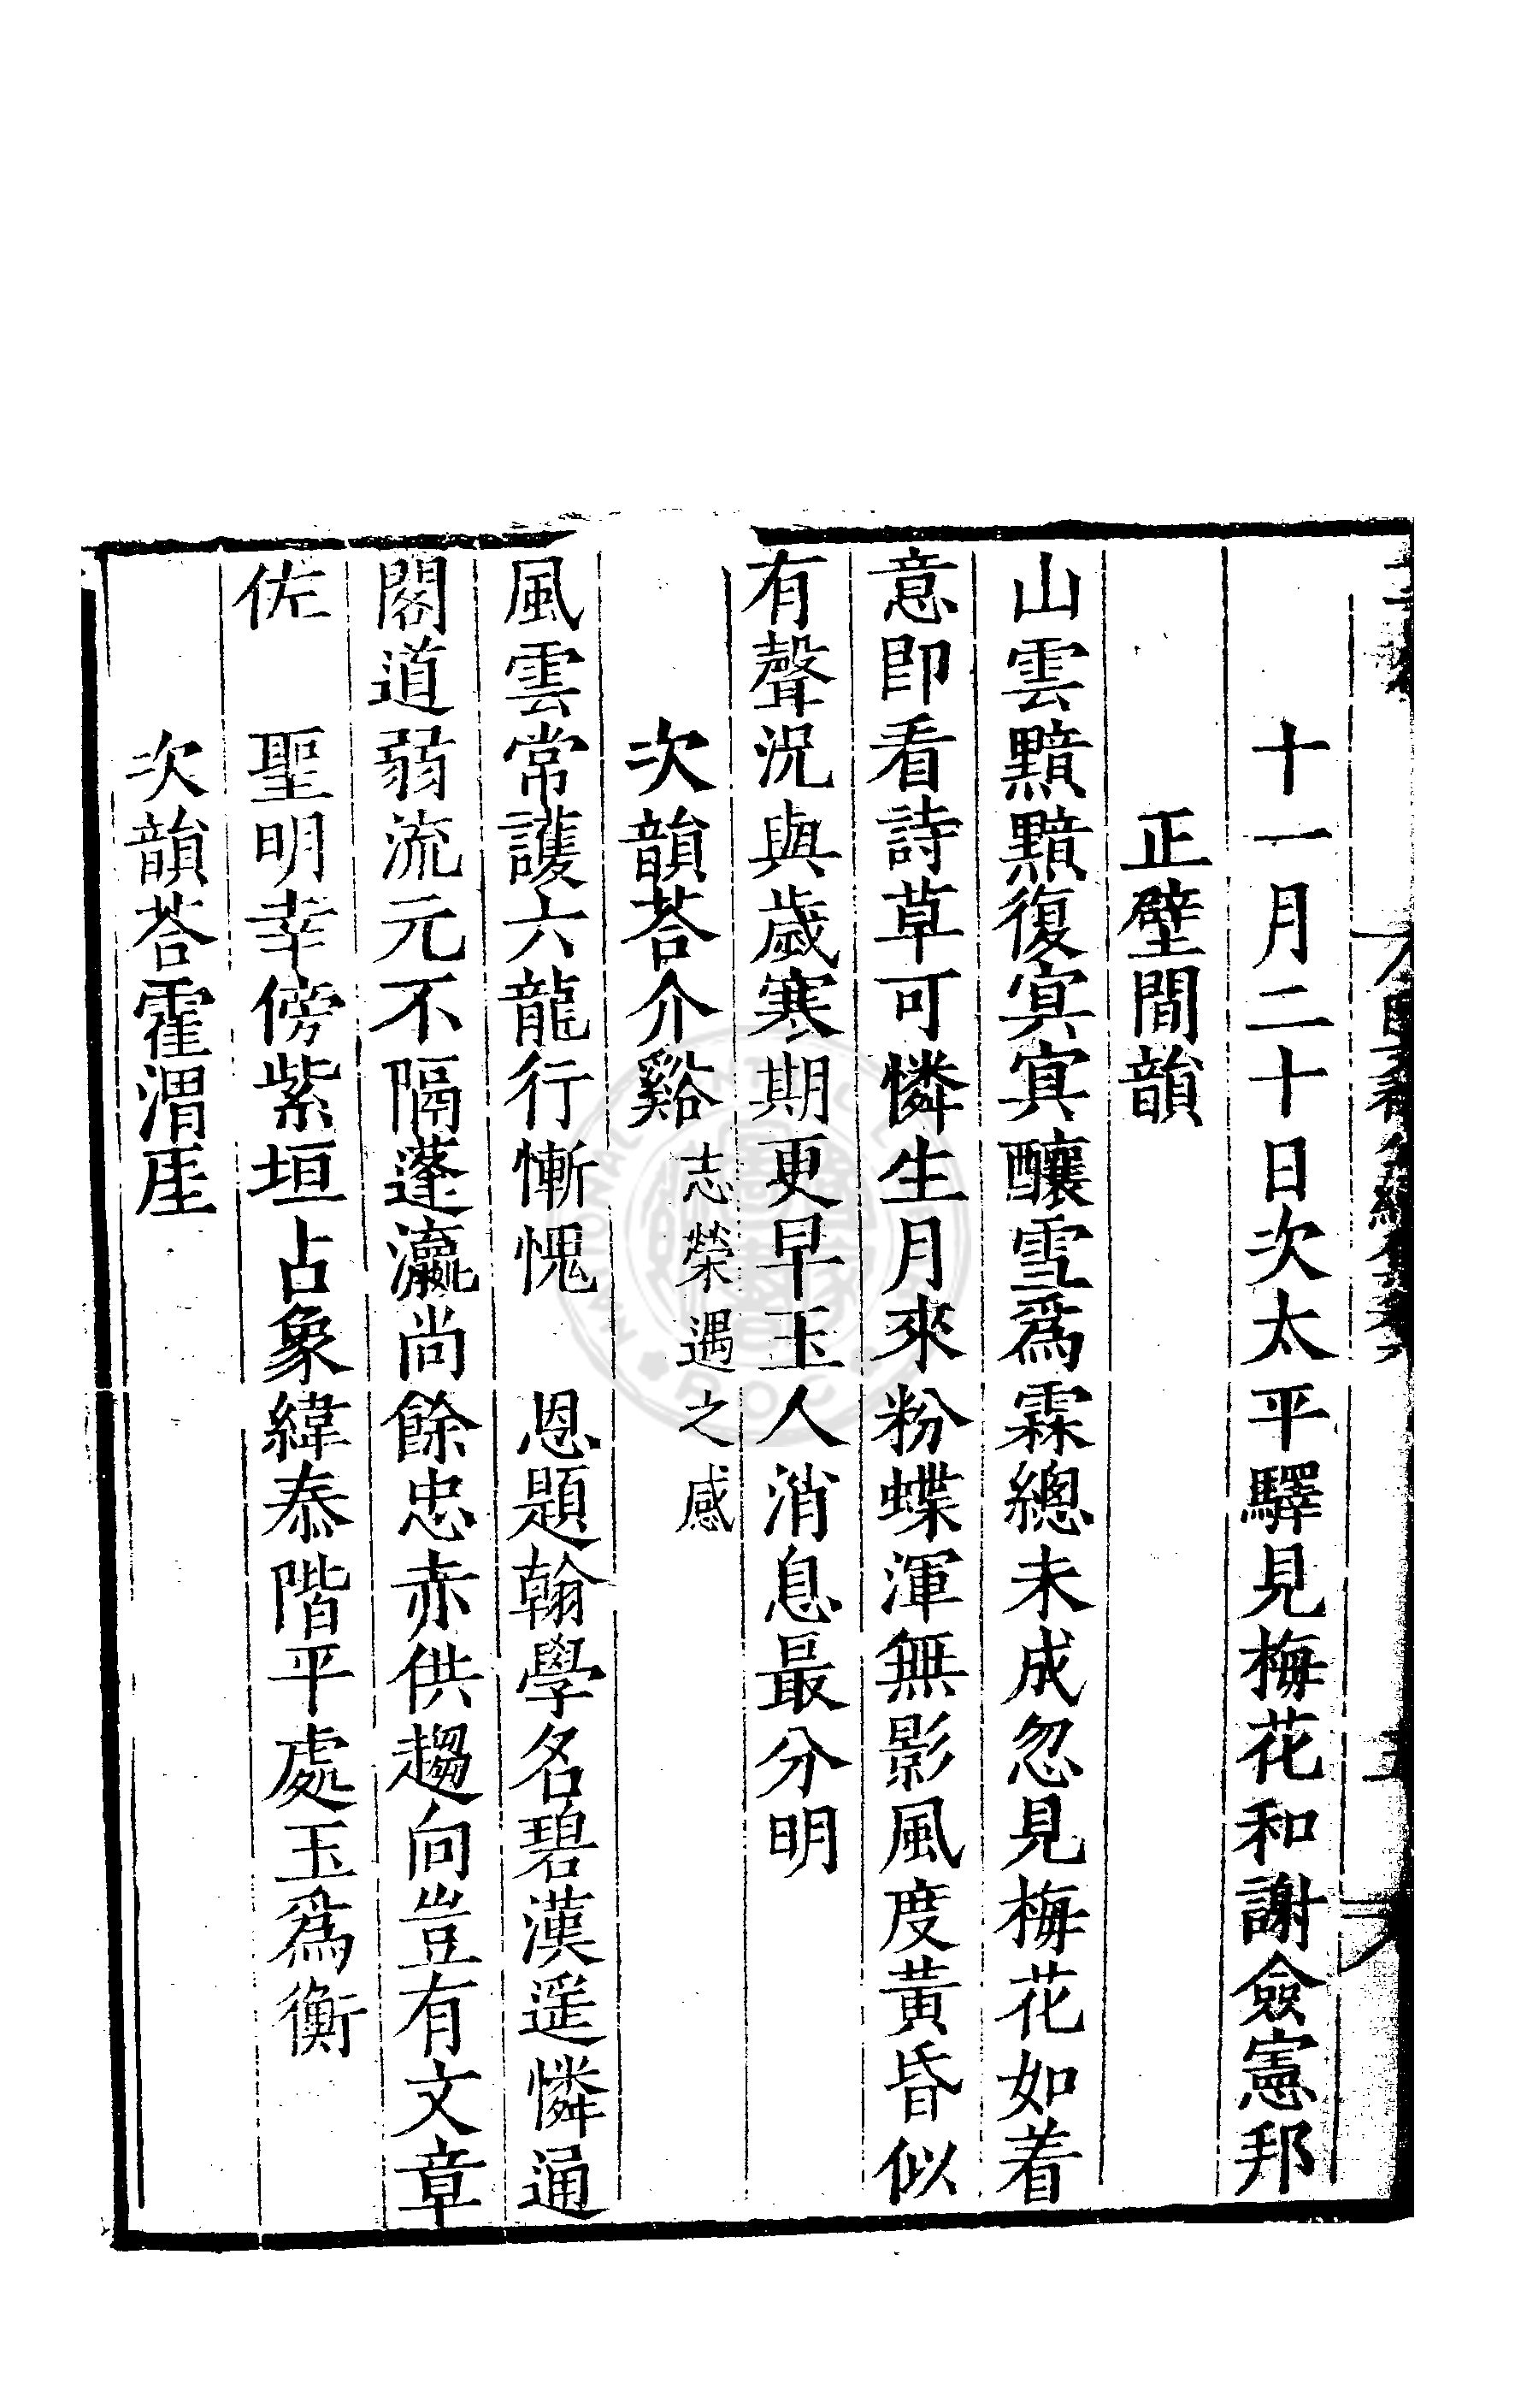 十一月二十日次太平驛見梅花和謝僉憲邦
正壁間韻
山雲黯黯復冥冥釀雪爲霖總未成忽見梅花如着
意即看詩草可憐生月來粉蝶渾無影風度黃昏似
有聲況與歲寒期更早玉人消息最分明
次韻荅介谿志榮遇之感
風雲常護六龍行慚愧 恩題翰學名碧漢遥憐通
閣道弱流元不隔蓬瀛尚餘忠赤供趨向豈有文章
佐 聖明幸傍紫垣占象緯泰階平處玉爲衡
次韻荅霍渭厓